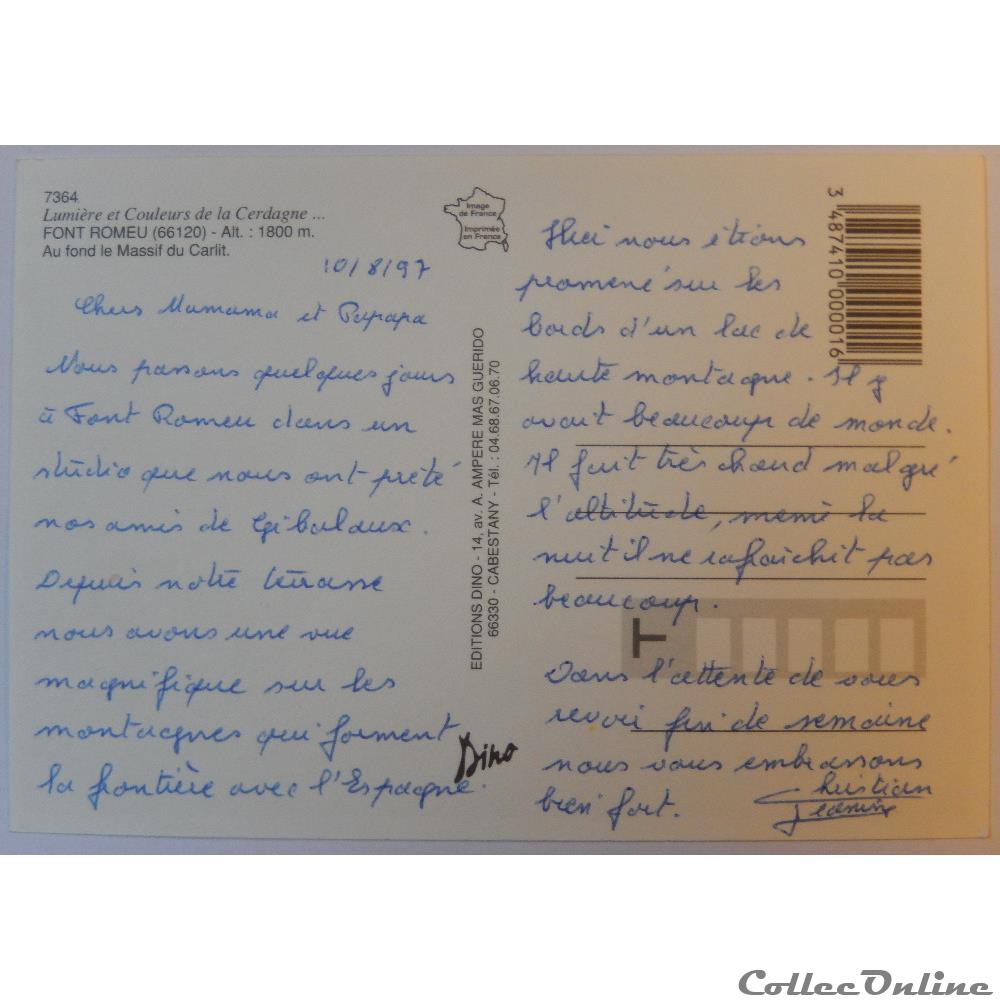 7364
Lumière et Couleurs de la Cerdagne ...
FONT ROMEU (66120) - Alt. : 1800 m.
Au fond le Massif du Carlit.
10/8/97
Chers Mamama et Papapa
Nous passons quelques jours
à Font Romeu dans un
studio que nous ont prété
nos amis de
Depuis notre terrasse
nous avons une vue
magnifique sur les
montagnes qui forment
la frontière avec l'Espagne.
Image
de France
Imprimée
en France
EDITIONS DINO - 14, av. A. AMPERE MAS GUERIDO
66330 - CABESTANY - Tél. : 04.68.67.06.70
Dino
3 487410 000016
Hier nous étions
promené sur les
bords d'un lac de
haute montagne. Il y
avait beaucoup de monde.
Il fait très chaud malgré
l'altitude, même la
nuit il ne rafraîchit pas
beaucoup.
T
Dans l'attente de vous
revoir fin de semaine
nous vous embrassons
bien fort.
Christian
Jeanine
CollecOnline